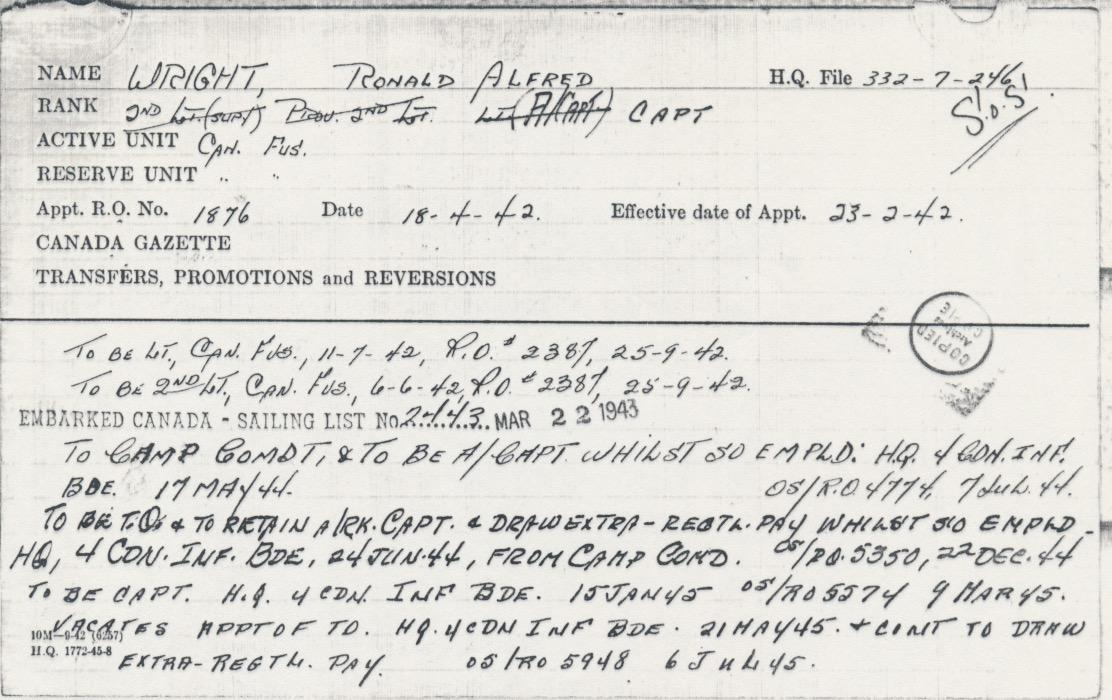 NAME WRIGHT, RONALD ALFRED H.Q. File 332-7-246
RANK 2ND LT.(SUPY) PROV. 2ND LT. LT(A/CAPT) CAPT S.O.S!
ACTIVE UNIT CAN. FUS.
RESERVE UNIT " "
Appt. R.O. No. 1876 Date 18-4-42. Effective date of Appt. 23-2-42.
CANADA GAZETTE
TRANSFERS, PROMOTIONS and REVERSIONS
COPIED
TO BE LT., CAN. FUS., 11-7-42, R.O.# 2387, 25-9-42.
TO BE 2ND LT., CAN. FUS., 6-6-42, R.O.# 2387, 25-9-42.
EMBARKED CANADA - SAILING LIST No. 2443 MAR 22 1943
TO CAMP COMDT, & TO BE A/CAPT. WHILST SO EMPLD: HQ. 4 CDN. INF.
BDE. 17 MAY 44. OS/R.O 4774, 7 JUL. 44.
TO BE T.O. & TO RETAIN A/RK. CAPT. & DRAW EXTRA-REGTL. PAY WHILST SO EMPLD -
HQ, 4 CDN. INF. BDE, 24 JUN. 44, FROM CAMP COMD. OS/RO. 5350, 22 DEC. 44
TO BE CAPT. H.Q. 4 CDN. INF BDE. 15 JAN 45 OS/RO 5574 9 MAR 45.
VACATES APPT OF TO. HQ. 4 CDN INF BDE. 21 MAY 45. & CONT TO DRAW
10M—9-42 (6257)
H.Q. 1772-45-8
EXTRA-REGTL. PAY. OS/RO 5948 6 JUL 45.